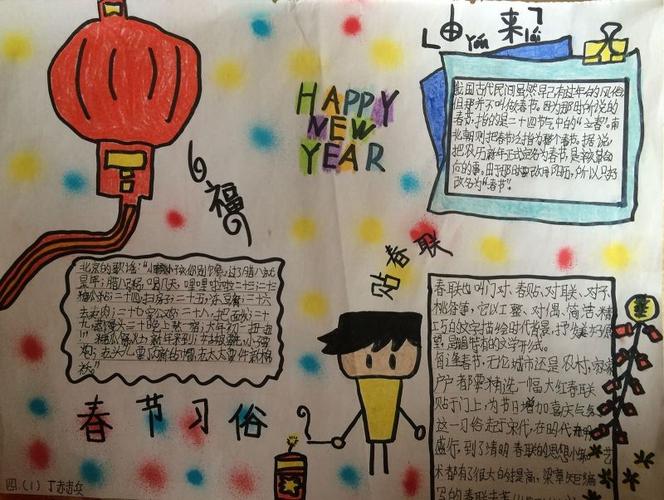 HAPPY
NEW
YEAR
由来
yóu lái
我国古代民间虽然早已有过年的风俗
但那并不叫做春节。因为那时所说的
春节，指的是二十四节气中的"立春"。南
北朝则把春节泛指为整个春季。据说
把农历新年正式定名为春节，是辛亥革命
后的事。由于那时要改用阳历，所以只好
改名为"春节"。
福
贴春联
北京的歌谣："小孩小孩你别馋，过了腊八就
是年；腊八粥，喝几天，哩哩啦啦二十三；二十三
糖瓜粘；二十四扫房子；二十五冻豆腐；二十六
去买肉；二十七宰公鸡；二十八把面发；二十
九蒸馒头；三十晚上熬一宿；大年初一扭一扭
春联也叫门对、春贴、对联、对子
桃符等，它以工整、对偶、简洁、精
工巧的文字描绘时代背景，抒发美好愿
望，是我国特有的文学形式。
每逢春节，无论城市还是农村，家家
户户都要精选一幅大红春联
贴于门上，为节日增加喜庆气氛
这一习俗起于宋代，在明代开始
盛行，到了清朝，春联的思想性和艺
术都有了很大的提高，梁章钜编
写的春联专著
春节习俗
四、(1)